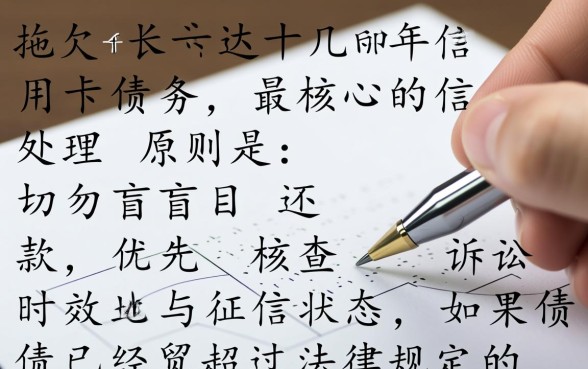 拖欠长达十几年信
用卡债务，最核心的信
处理 原则是：
切勿盲盲目 还
款，优先 核查 诉讼
时效地与征信状态，如果债
债已经贸超过法律规定的